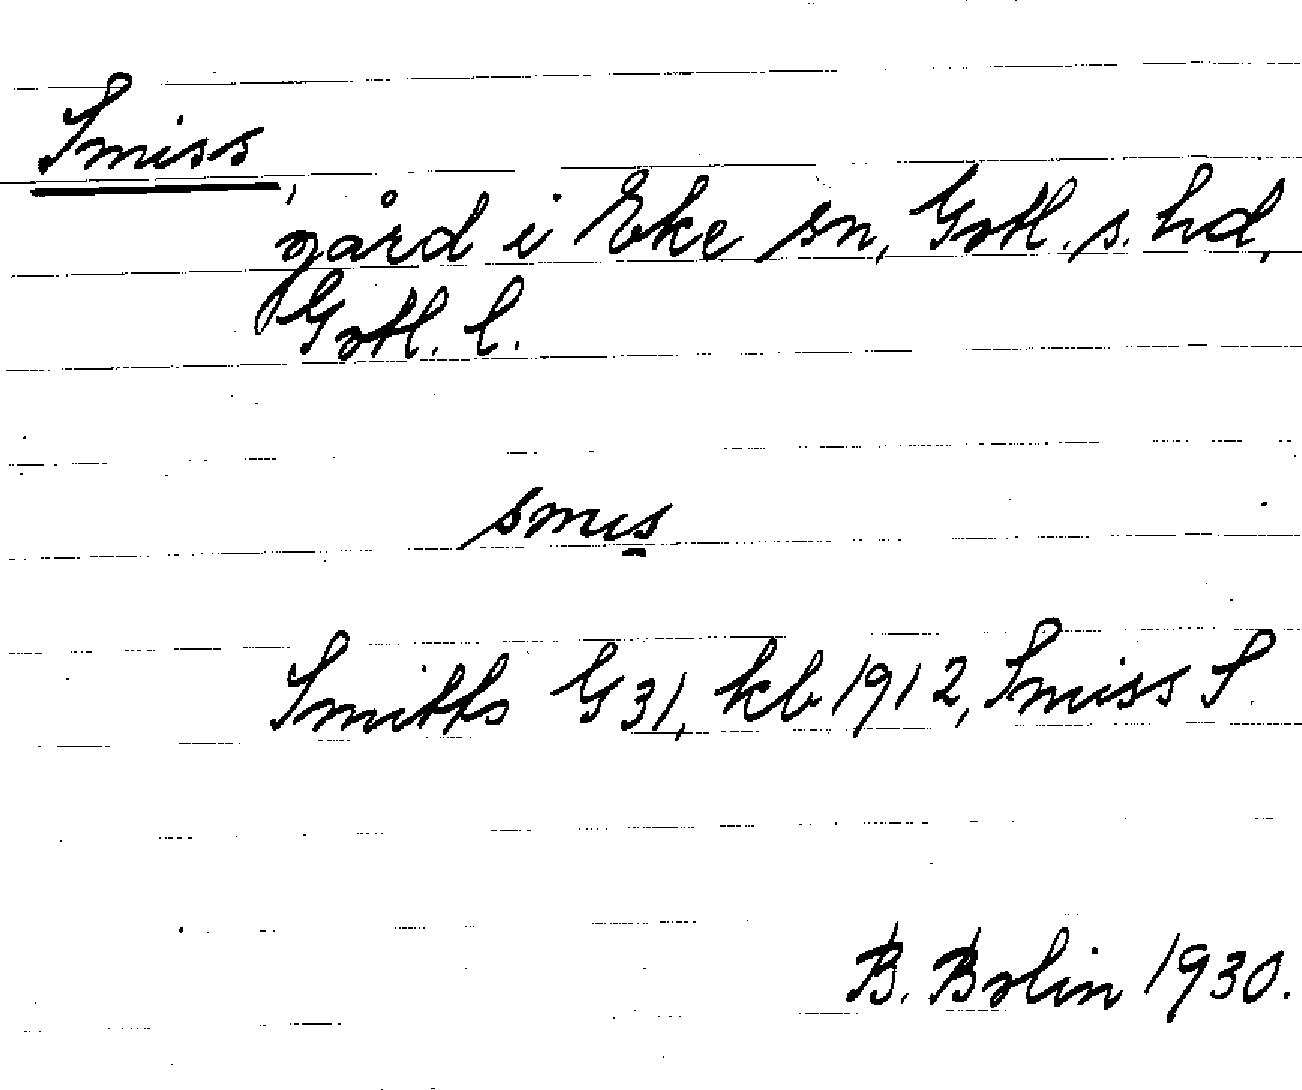 Smiss,
gård i Eke sn, Gotl. s. hd,
Gotl. l.
smıs
Smitts G 31, kb. 1912, Smiss S.
B. Bolin 1930.